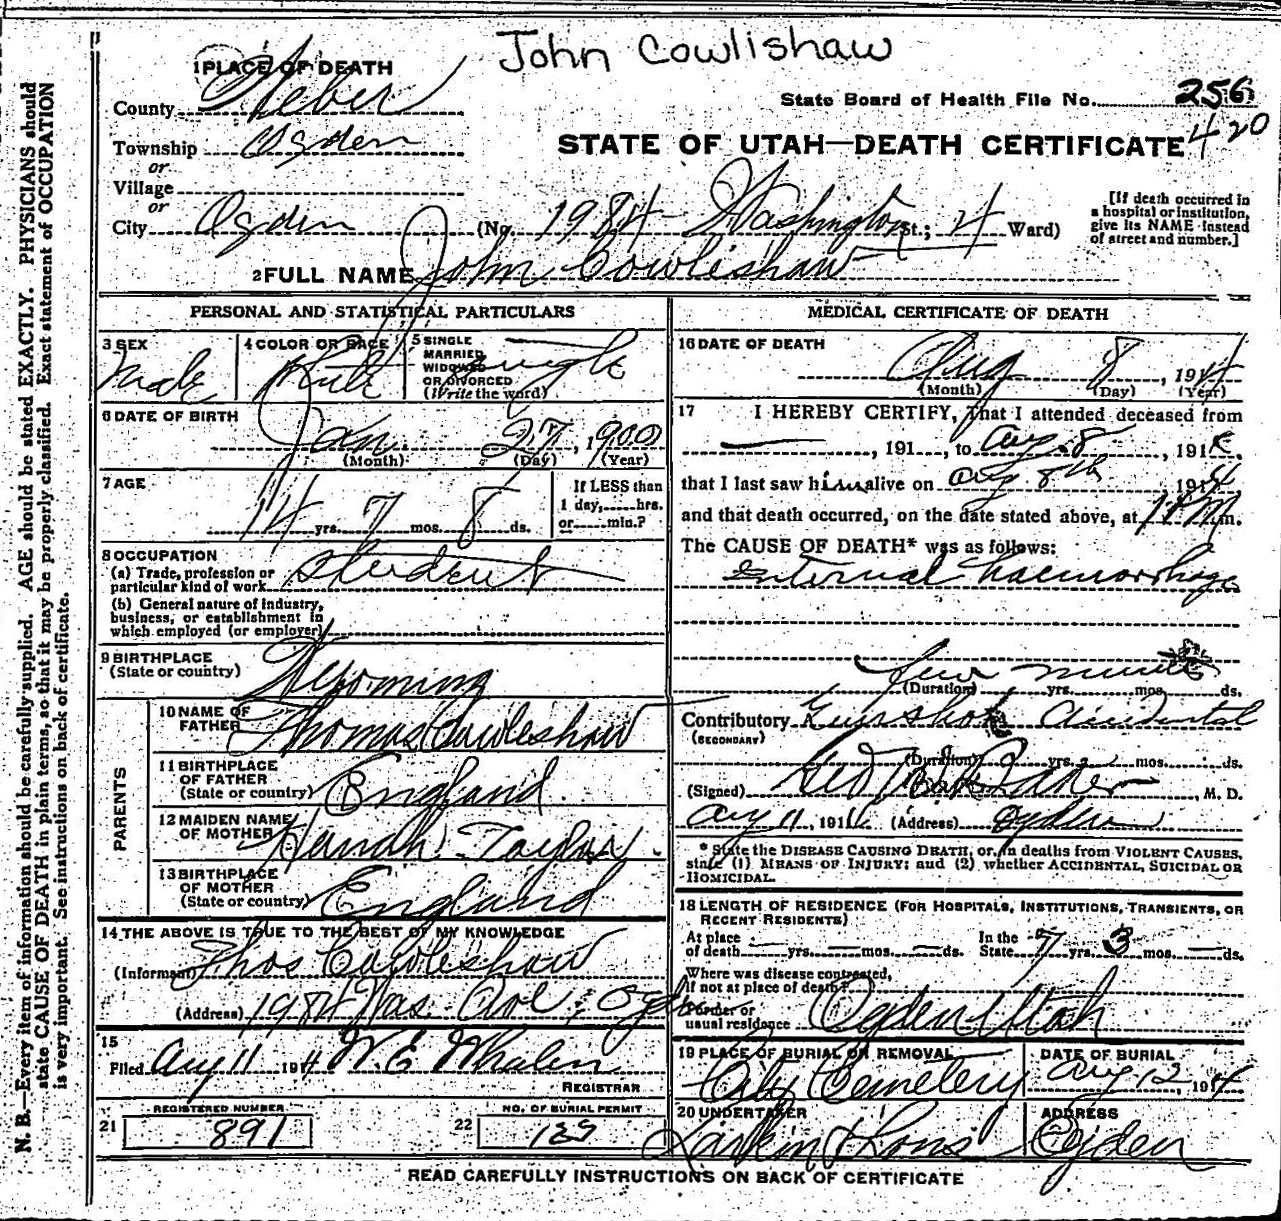 John Cowlishaw
1 PLACE OF DEATH
County Weber
State Board of Health File No. 256
420
Township Ogden
STATE OF UTAH—DEATH CERTIFICATE
or
Village
or
City Ogden (No. 1984 Washington St.; 4 Ward)
[If death occurred in
a hospital or institution,
give its NAME instead
of street and number.]
2 FULL NAME John Cowlishaw
PERSONAL AND STATISTICAL PARTICULARS
3 SEX
Male
4 COLOR OR RACE
5 SINGLE
MARRIED
WIDOWED
OR DIVORCED
(Write the word)
single
6 DATE OF BIRTH
Jan 27, 1900
(Month) (Day) (Year)
7 AGE
14 yrs. 7 mos. 8 ds.
If LESS than
1 day,......hrs.
or......min.?
8 OCCUPATION
(a) Trade, profession or
particular kind of work Student
(b) General nature of industry,
business, or establishment in
which employed (or employer)
9 BIRTHPLACE
(State or country) Wyoming
PARENTS
10 NAME OF
FATHER Thomas Cowleshaw
11 BIRTHPLACE
OF FATHER
(State or country) England
12 MAIDEN NAME
OF MOTHER Hanah Taylor
13 BIRTHPLACE
OF MOTHER
(State or country) England
14 THE ABOVE IS TRUE TO THE BEST OF MY KNOWLEDGE
(Informant) Thos Cowleshaw
(Address) 1984 Was. Ave; Ogden
15
Filed Aug 11 1914 W. E. Whalen
REGISTRAR
21 REGISTERED NUMBER
891
22 NO. OF BURIAL PERMIT
MEDICAL CERTIFICATE OF DEATH
16 DATE OF DEATH
Aug 8, 1914
(Month) (Day) (Year)
17 I HEREBY CERTIFY, That I attended deceased from
, 191 , to Aug 8, 191
that I last saw him alive on Aug 8th 1914
and that death occurred, on the date stated above, at 1 P M m.
The CAUSE OF DEATH* was as follows:
internal haemorrhage
few minutes
(Duration) yrs. mos. ds.
Contributory Gunshot Accidental
(SECONDARY)
(Duration) yrs. mos. ds.
(Signed) , M. D.
Aug 11, 191 (Address) Ogden
* State the DISEASE CAUSING DEATH, or, in deaths from VIOLENT CAUSES,
state (1) MEANS OF INJURY; and (2) whether ACCIDENTAL, SUICIDAL OR
HOMICIDAL.
18 LENGTH OF RESIDENCE (FOR HOSPITALS, INSTITUTIONS, TRANSIENTS, OR
RECENT RESIDENTS)
At place
of death yrs. mos. ds. In the
State 7 yrs. 3 mos. ds.
Where was disease contracted,
if not at place of death?
Former or
usual residence Ogden Utah
19 PLACE OF BURIAL OR REMOVAL
City Cemetery
DATE OF BURIAL
Aug 12, 1914
20 UNDERTAKER
Larkin & Sons
ADDRESS
Ogden
READ CAREFULLY INSTRUCTIONS ON BACK OF CERTIFICATE
N. B.—Every item of information should be carefully supplied. AGE should be stated EXACTLY. PHYSICIANS should
state CAUSE OF DEATH in plain terms, so that it may be properly classified. Exact statement of OCCUPATION
is very important. See instructions on back of certificate.